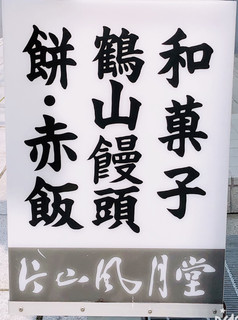 和菓子
鶴山饅頭
餅・赤飯
片山風月堂